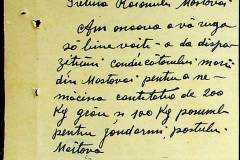 Pretura Raionului Mostovoi
Am onoarea a vă ruga
să bine voiti a da dispo
zițiuni conducătorului morii
din Mostovoi pentru a ne
măcina cantitatea de 200
Kg grâu și 100 Kg porumb
pentru jandarmi, postului
Mostova